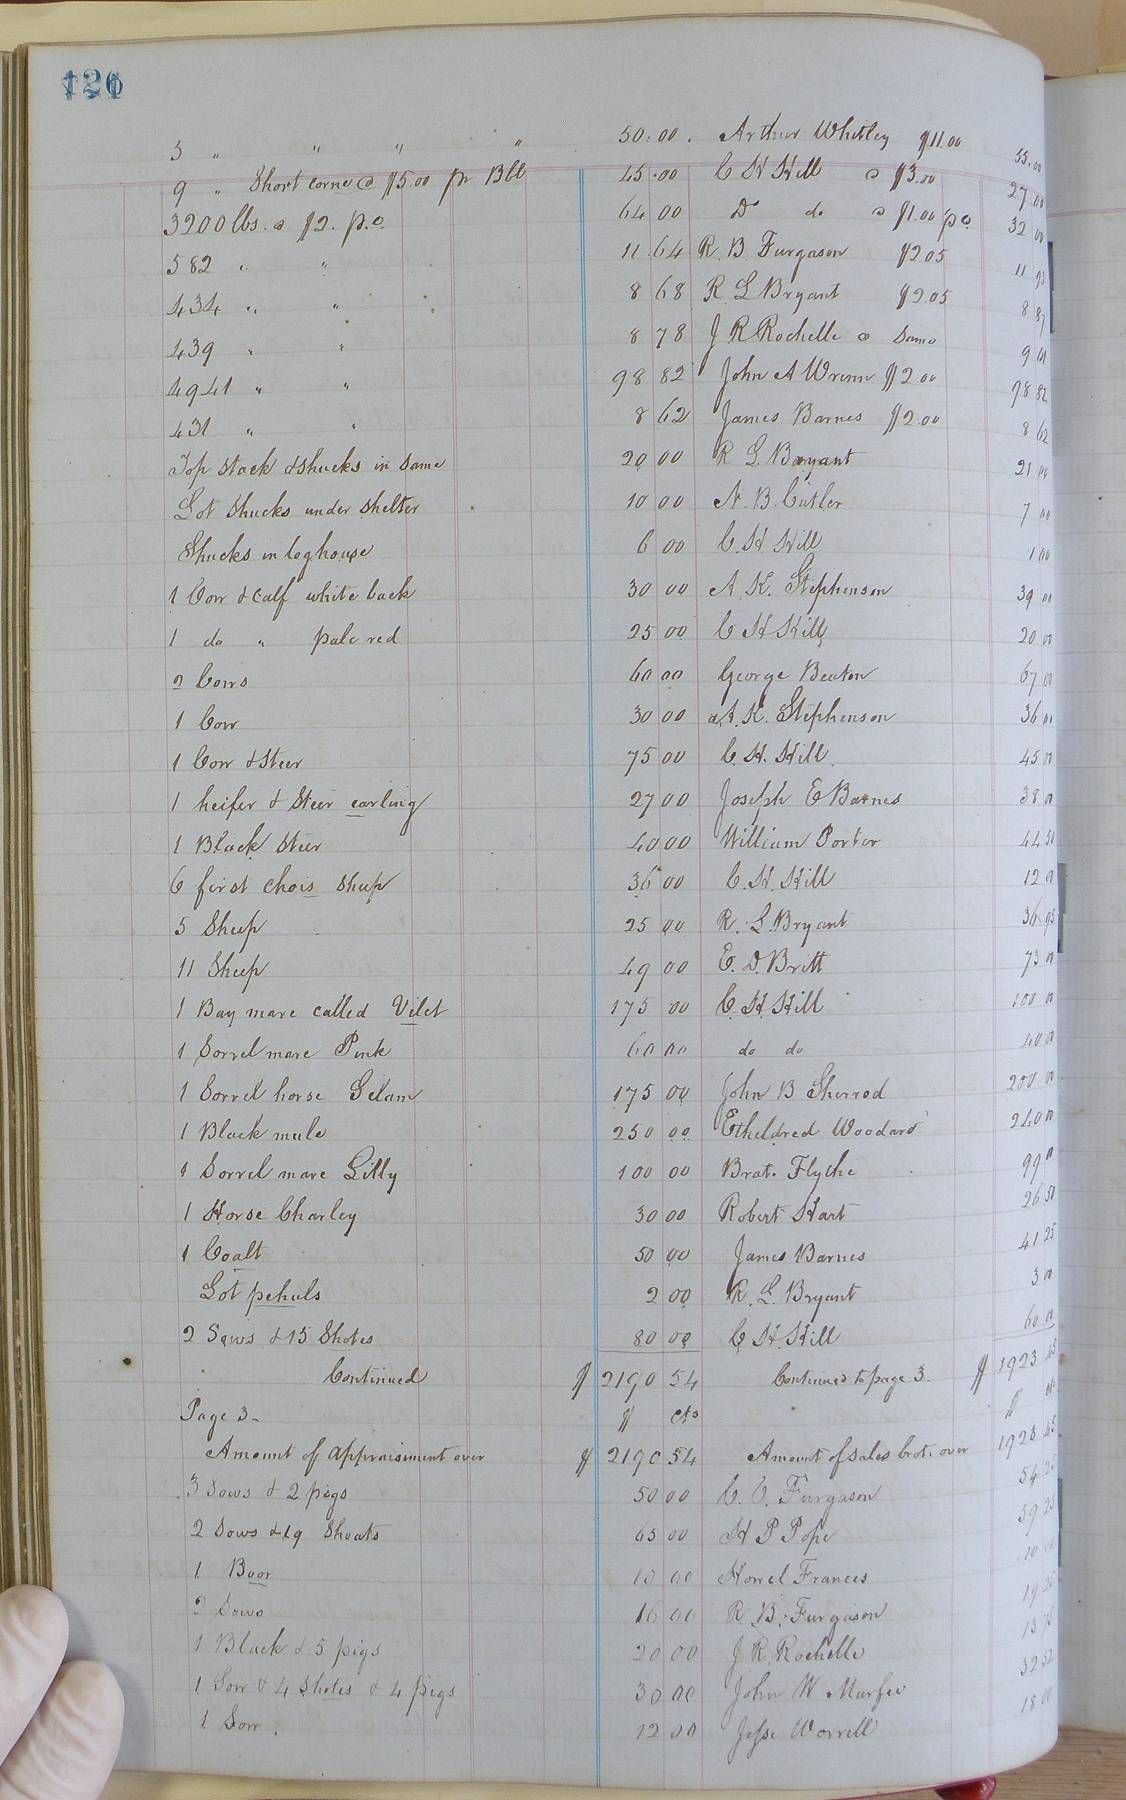 126
5 " " " " 50.00. Arthur Whitley $11.00 55.00
9 " Short corne @ $5.00 pr Bbl 45.00 C H Hill @ $3.00 27 00
3200 lbs. @ $2. p.c. 64 00 Do do @ $1.00 p.c 32 00
582 " " 11.64 R. B. Furgason $2.05 11 93
434 " " 8 68 R L Bryant $2.05 8 89
439 " " 8 78 J R Rochelle @ Same 9 01
4941 " " 98 82 John A Wrenn $2.00 98 82
431 " " 8 62 James Barnes $2.00 8 62
Top stack & shucks in same 20 00 R L Bryant 21 00
Lot Shucks under shelter 10 00 N. B. Cutler 7 00
Shucks in loghouse 6 00 C. H Hill 1 00
1 Cow & calf white back 30 00 A. K. Stephenson 39 00
1 do " pale red 25 00 C H Hill 20 00
2 Cows 60 00 George Beaton 67 00
1 Cow 30 00 A. K. Stephenson 36 00
1 Cow & Steer 75 00 C. H. Hill 45 00
1 heifer & Steer earling 27 00 Joseph E Barnes 38 00
1 Black Steer 40 00 William Porter 44 50
6 first chois sheep 36 00 C. H. Hill 12 00
5 Sheep 25 00 R. L. Bryant 36 95
11 Sheep 49 00 E. D. Britt 73 00
1 Bay mare called Vilet 175 00 C. H Hill 100 00
1 Sorrel mare Pink 60 00 do do 40 00
1 Sorrel horse Selam 175 00 John B Sherrod 200 00
1 Black mule 250 00 Etheldred Woodard 240 00
1 Sorrel mare Lilly 100 00 Brat. Flythe 99 00
1 Horse Charley 30 00 Robert Hart 26 50
1 Coalt 50 00 James Barnes 41 25
Lot pehuls 2 00 R. L. Bryant 3 00
2 Sows & 15 Shotes 80 00 C H Hill 60 00
Continued $ 2190 54 Continued to page 3. $ 1923 45
Page 3- $ cts $ cts
Amount of appraisiment over $ 2190 54 Amount of sales brot. over 1923 45
3 Sows & 2 pigs 50 00 C. C. Furgason 54 25
2 Sows & 19 Shoats 65 00 H P Pope 59 25
1 Boor 10 00 Horrel Frances 10 00
2 Sows 16 00 R. B. Furgason 19 25
1 Black & 5 pigs 20 00 J R. Rochelle 13 75
1 Sow & 4 shotes & 4 pigs 30 00 John W Murfee 32 52
1 Sow. 12 00 Jesse Worrell 18 00